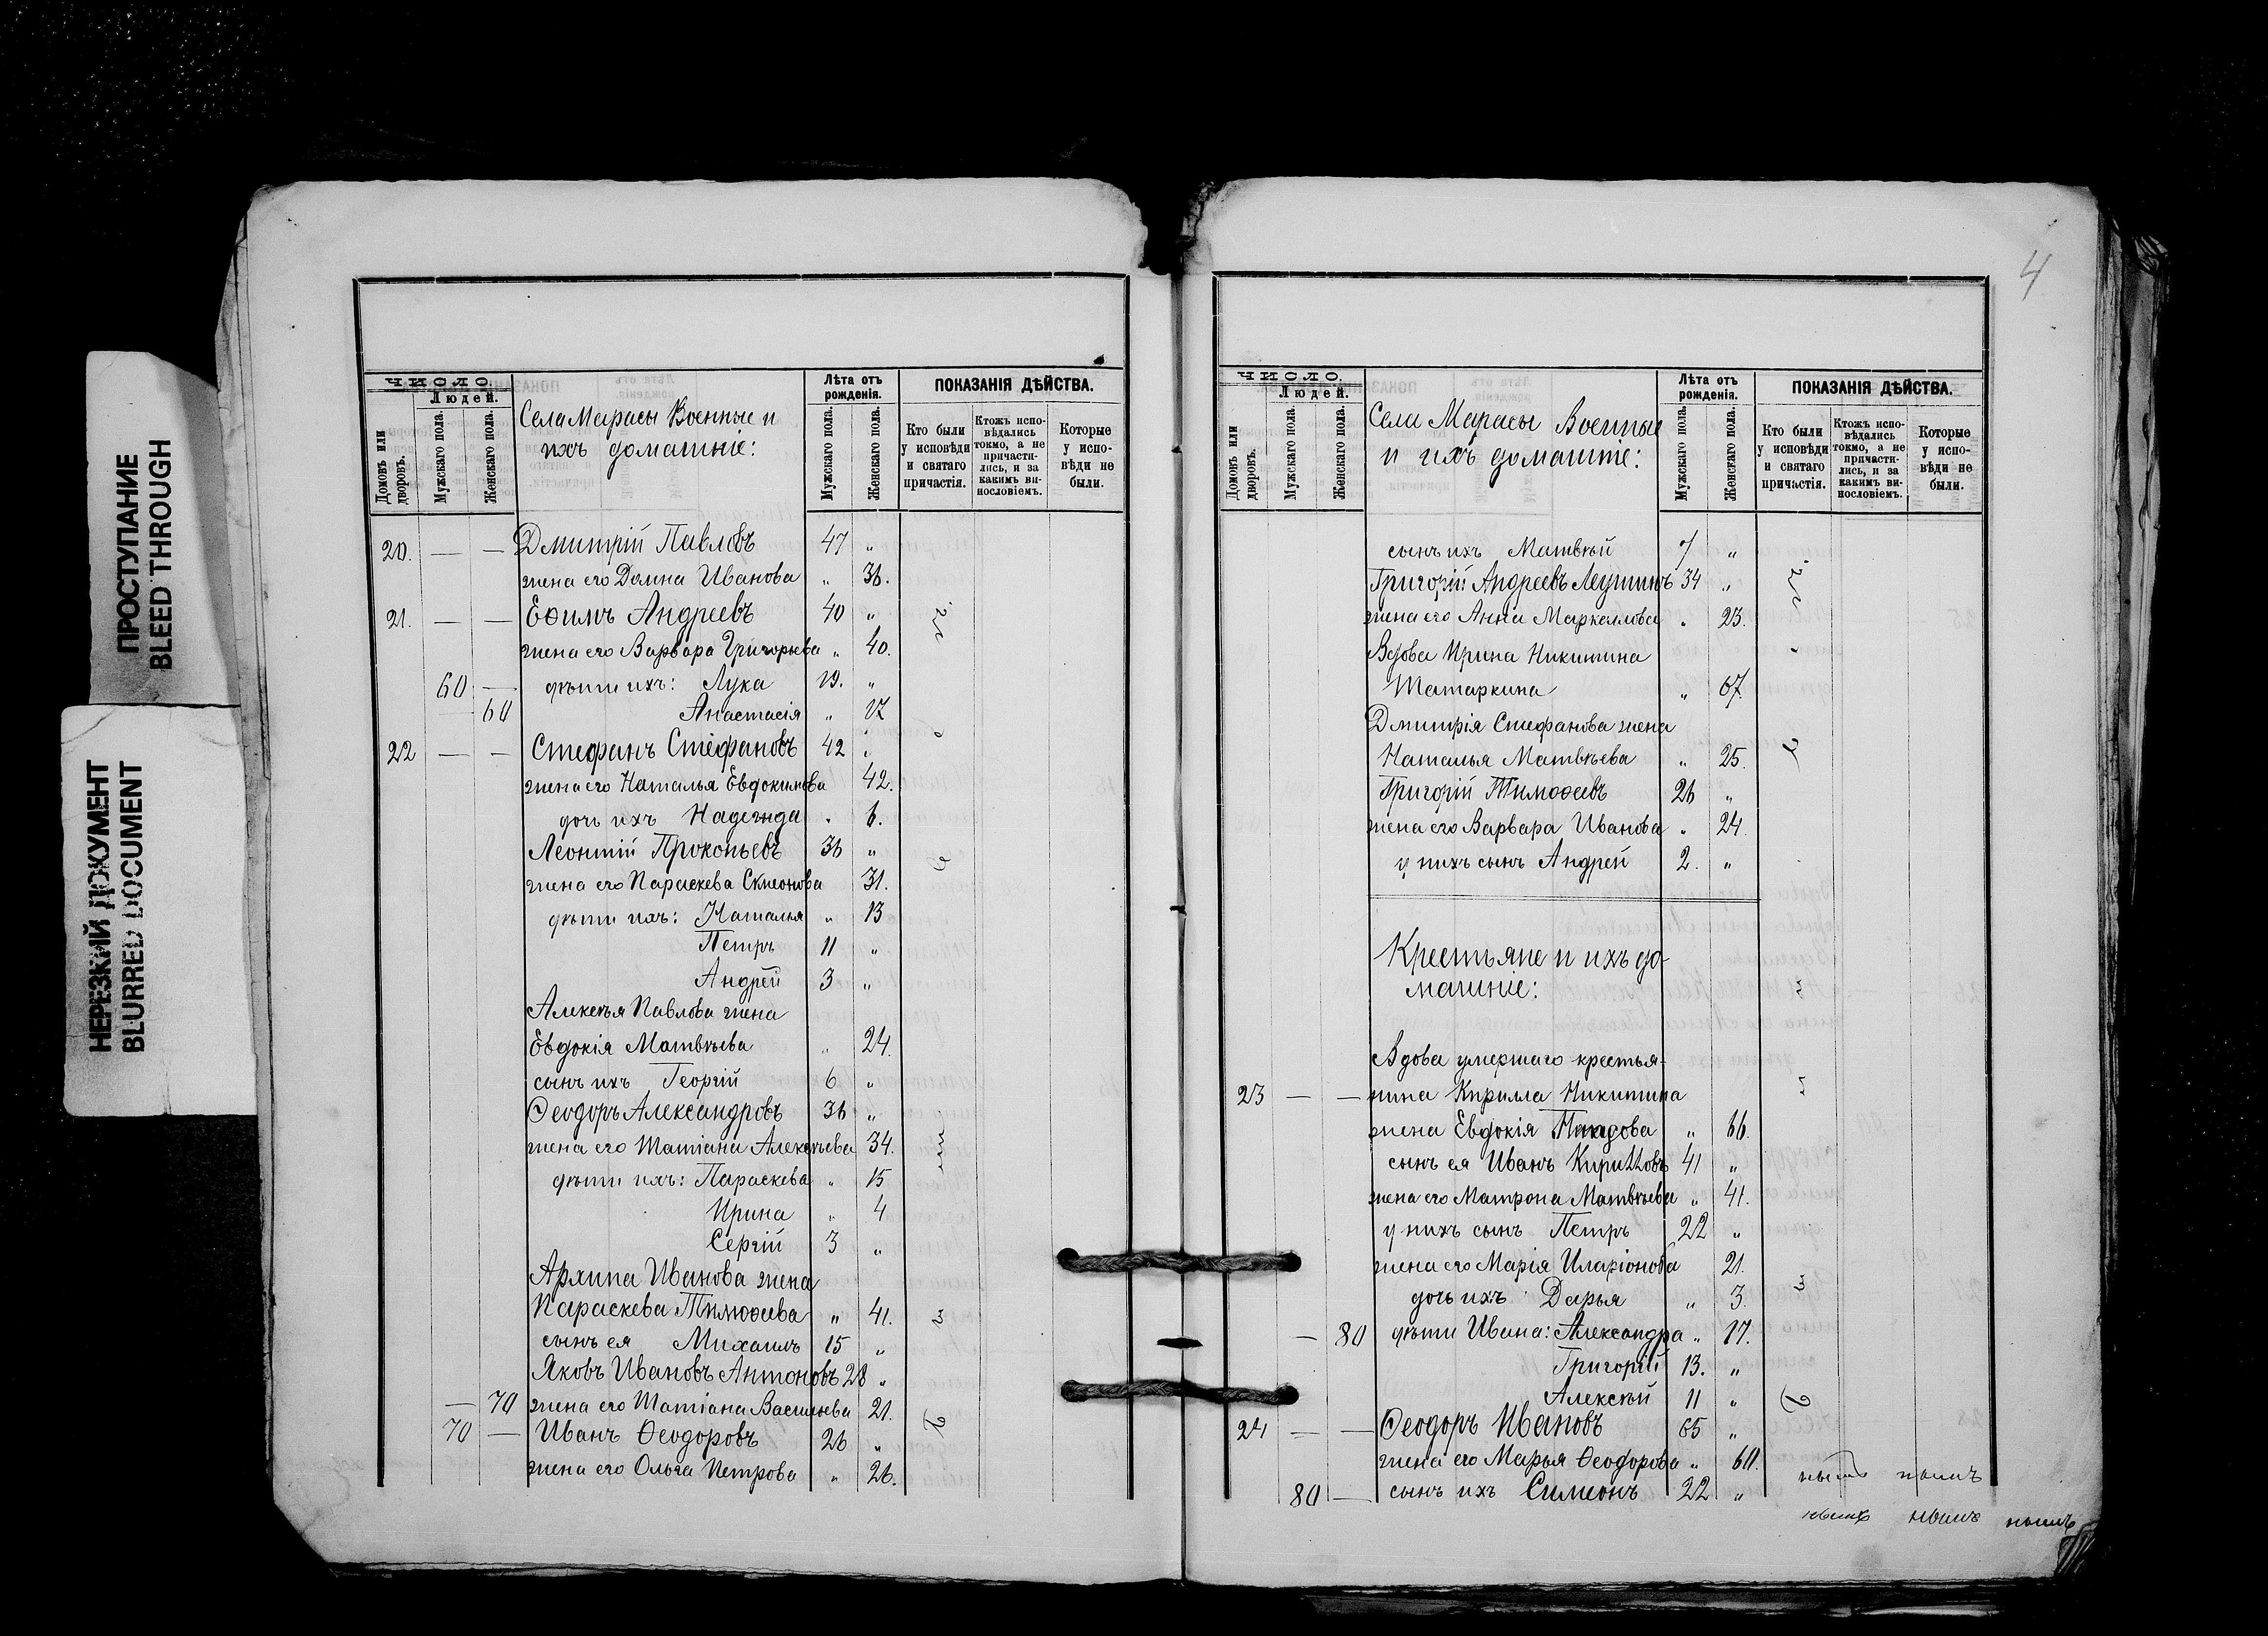 ПРОСТУПАНИЕ
BLEED THROUGH
НЕРЕЗКИЙ ДОКУМЕНТ
BLURRED DOCUMENT
ЧИСЛО.
Людей.
Домовъ или дворовъ.
Мужскаго пола.
Женскаго пола.
Села Марасы Военные и
ихъ домашніе:
Лѣта отъ рожденія.
Мужскаго пола.
Женскаго пола.
ПОКАЗАНІЯ ДѢЙСТВА.
Кто были у исповѣди и святаго причастія.
Ктожъ исповѣдались токмо, а не причастились, и за какимъ винословіемъ.
Которые у исповѣди не были.
20. — — Дмитрій Павловъ 47 „
жена его Домна Иванова „ 36.
21. — — Ефимъ Андреевъ 40 „
жена его Варвара Григорьева „ 40.
60 — дѣти ихъ: Лука 19. „
60 Анастасія „ 17
22 — — Стефанъ Стефановъ 42 „
жена его Наталья Евдокимова 42.
дочь ихъ Надежда „ 6.
Леонтій Прокопьевъ 36 „
жена его Параскева Симеонова 31.
дѣти ихъ: Наталья „ 13
Петръ 11 „
Андрей 3 „
Алексѣя Павлова жена
Евдокія Матвѣева „ 24.
сынъ ихъ Георгій 6 „
Ѳеодоръ Александровъ 36 „
жена его Татіана Алексѣева 34.
дѣти ихъ: Параскева „ 15
Ирина „ 4
Сергій 3 „
Архипа Иванова жена
Параскева Тимоѳеева „ 41.
сынъ ея Михаилъ 15 „
Яковъ Ивановъ Антоновъ 28 „
— 70 жена его Татіана Васильева 21.
70 — Иванъ Ѳеодоровъ 26 „
жена его Ольга Петрова „ 26.
4
ЧИСЛО.
Людей.
Домовъ или дворовъ.
Мужскаго пола.
Женскаго пола.
Села Марасы Военные
и ихъ домашніе:
Лѣта отъ рожденія.
Мужскаго пола.
Женскаго пола.
ПОКАЗАНІЯ ДѢЙСТВА.
Кто были у исповѣди и святаго причастія.
Ктожъ исповѣдались токмо, а не причастились, и за какимъ винословіемъ.
Которые у исповѣди не были.
сынъ ихъ Матвѣй 7 „
Григорій Андреевъ 34 „
жена его Анна Маркеллова „ 23.
Вдова Ирина Никитина
Татаркина „ 67.
Дмитрія Стефанова жена
Наталья Матвѣева „ 25.
Григорій Тимоѳеевъ 26 „
жена его Варвара Иванова „ 24.
у нихъ сынъ Андрей 2. „
Крестьяне и ихъ до-
машніе:
Вдова умершаго крестья-
23 — — нина Кирилла Никитина
жена Евдокія „ 66.
сынъ ея Иванъ Кирилловъ 41 „
жена его Матрона Матвѣева „ 41.
у нихъ сынъ Петръ 22 „
жена его Марія Иларіонова 21.
дочь ихъ Дарья „ 3.
— 80 дѣти Ивана: Александра „ 17.
Григорій 13. „
Алексѣй 11 „
24 — — Ѳеодоръ Ивановъ 65 „
жена его Марья Ѳеодорова „ 60.
80 — сынъ ихъ Симеонъ 22 „